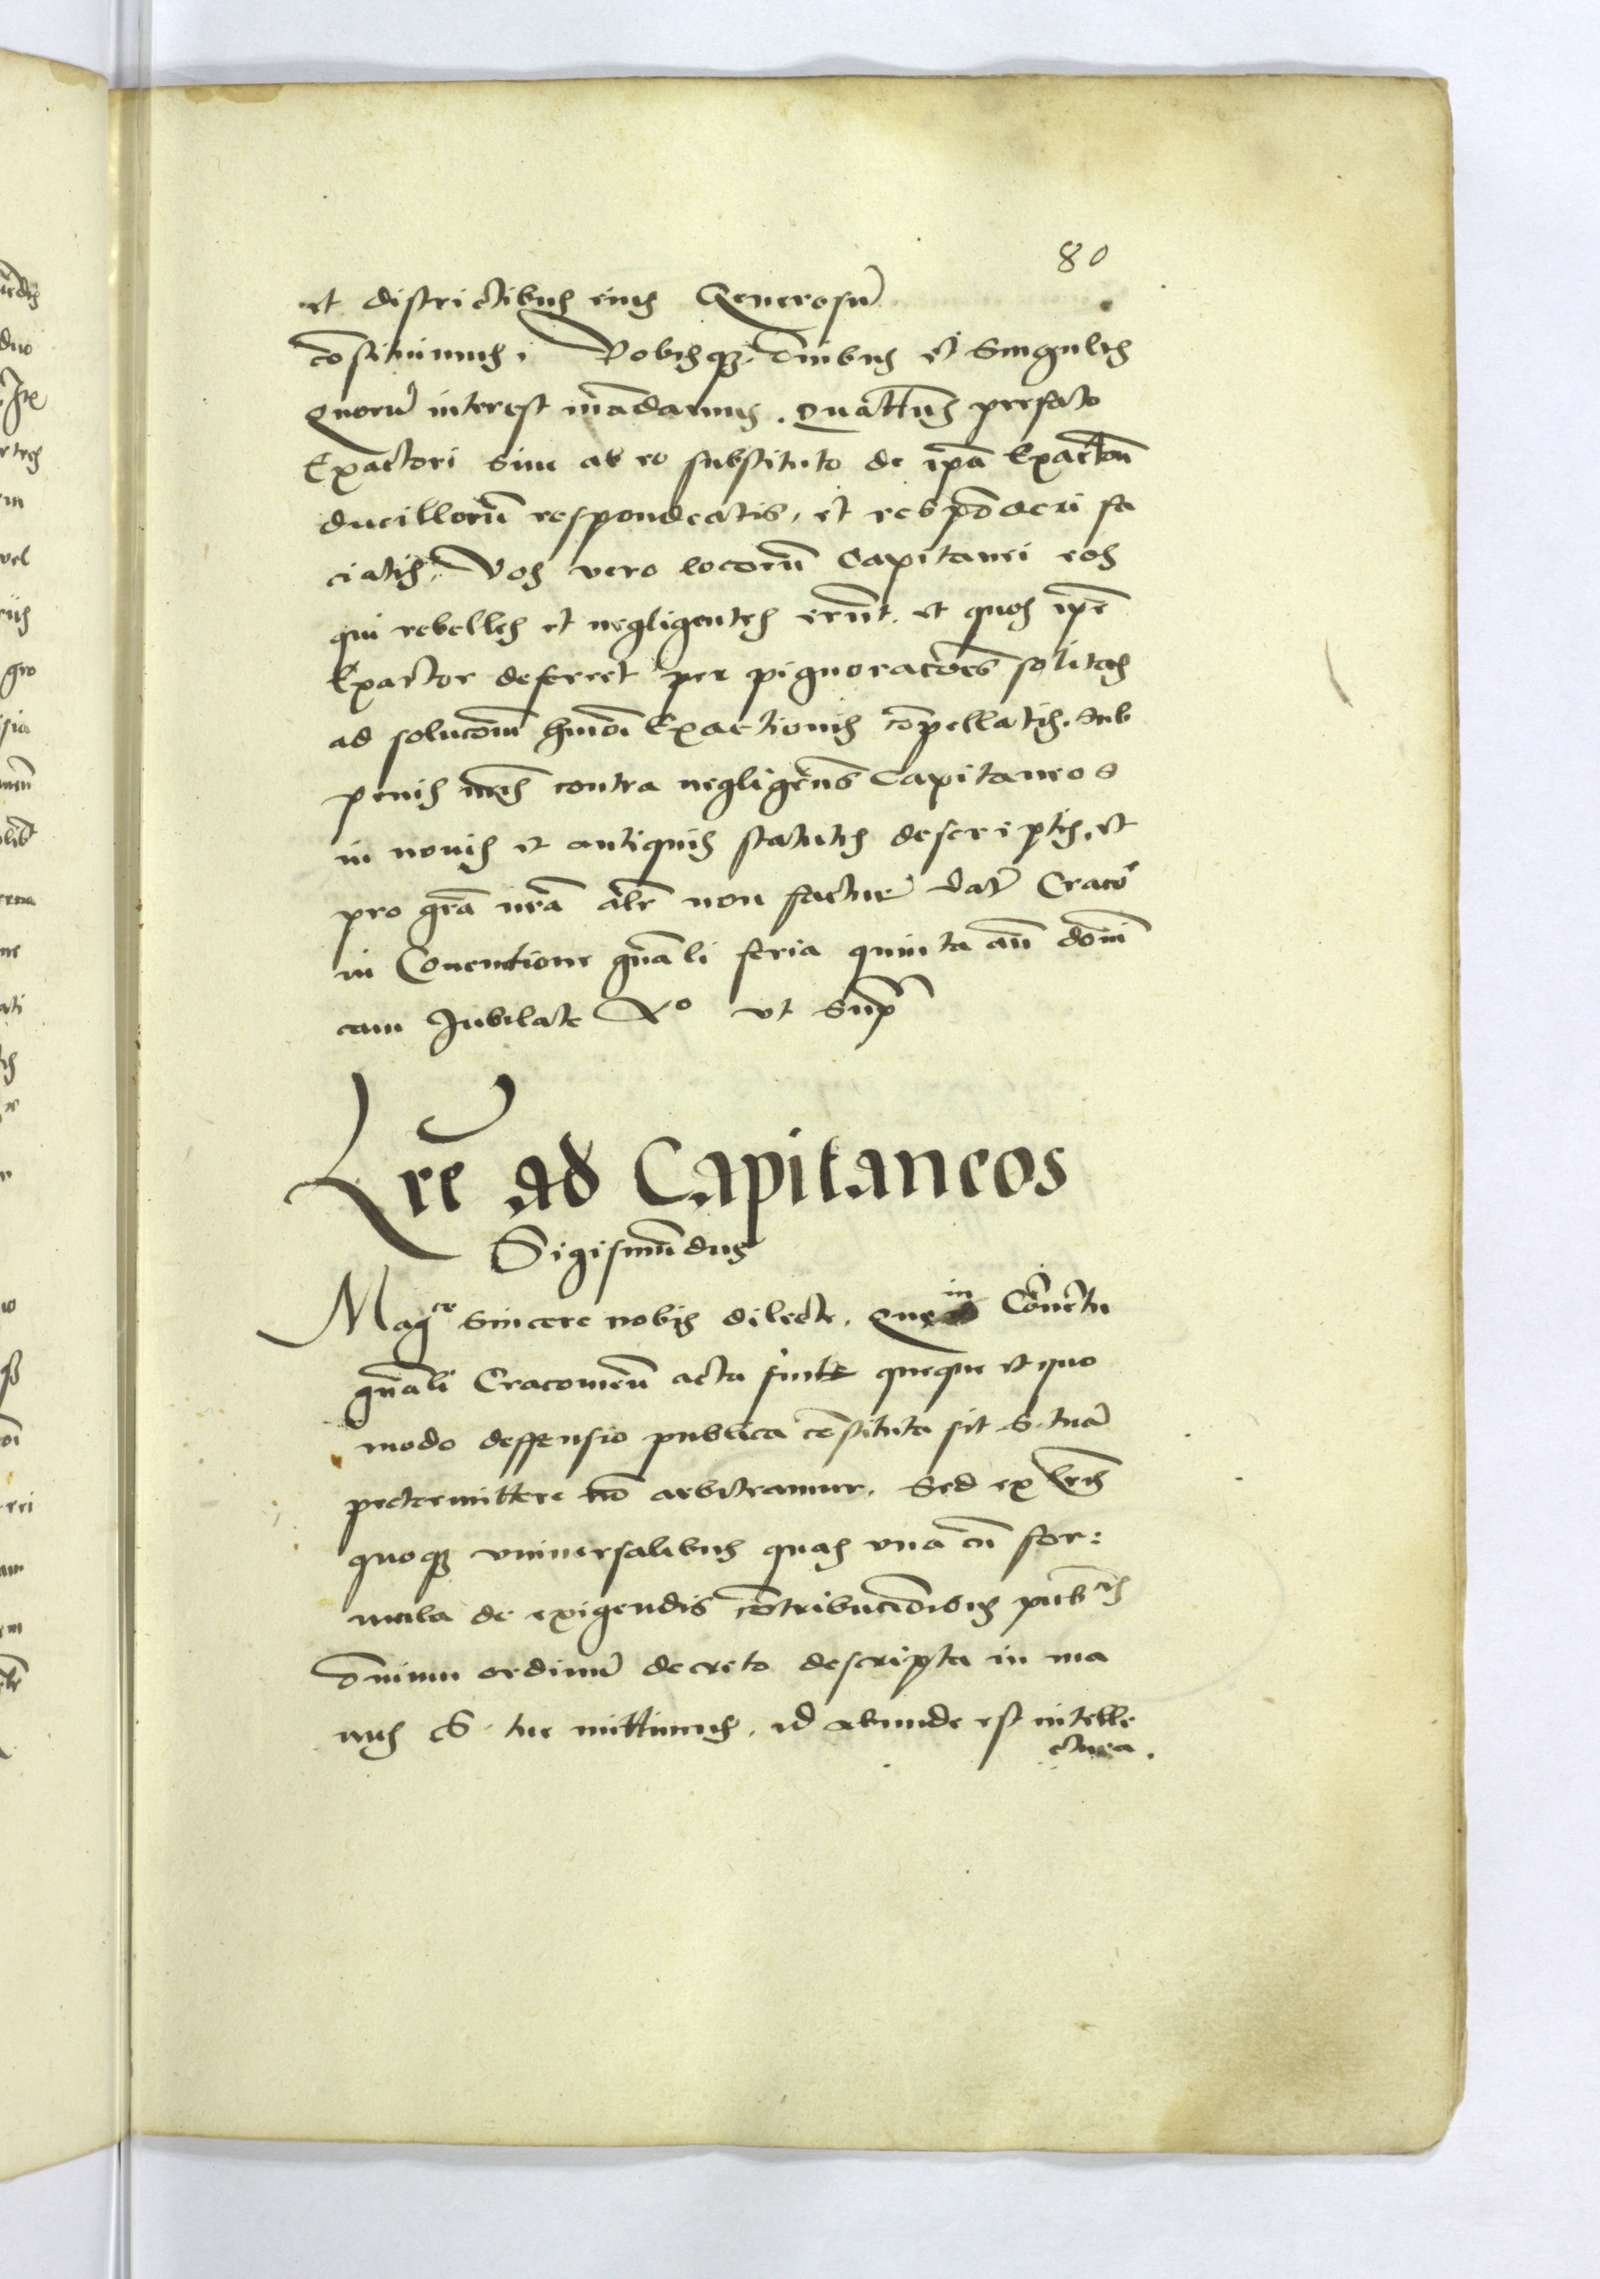 80
et districtibus eius Generosū
cōstituimus. Vobisqꝫ oīnibus et singulis
quorū interest mādamus. quatt꯭us prefato
Exactori siue ab eo substituto de ipā Exactōn
ducillorū respondeatis, et respōderi fa
ciatis. Vos vero locorū Capitanei eos
qui rebelles et negligentes erūt. et quos ipē
Exactor deferret per pignoracōes solitas
ad solucōm hmōi Exactionis cōpellatis. sub
penis contra negligēns Capitaneos
in nouis et antiquis statutis descriptis. et
pro grā nrā alr̄ non factur̄ Dat̄ Craco
in Conentione gnāli feria quinta an̄ domi̅
cam Jubilate Xo vt sup̄
Lrē ad Capitaneos
Sigismūdus
Magce sincere nobis dilecte. Que in Cōuētu
gnāli Cracouieñ acta sint queque et quo
modo deffensio publica cōstituta sit S. tuā
pretermittere nō arbitramur. Sed ex lrīs
quoqꝫ vniuersalibus quas vna cū for:
mula de exigendis cōtribucionibus pubcis
ōnium ordinū decreto descripta in ma
nus S. tue mittimus. id abunde est intelle
ctura.